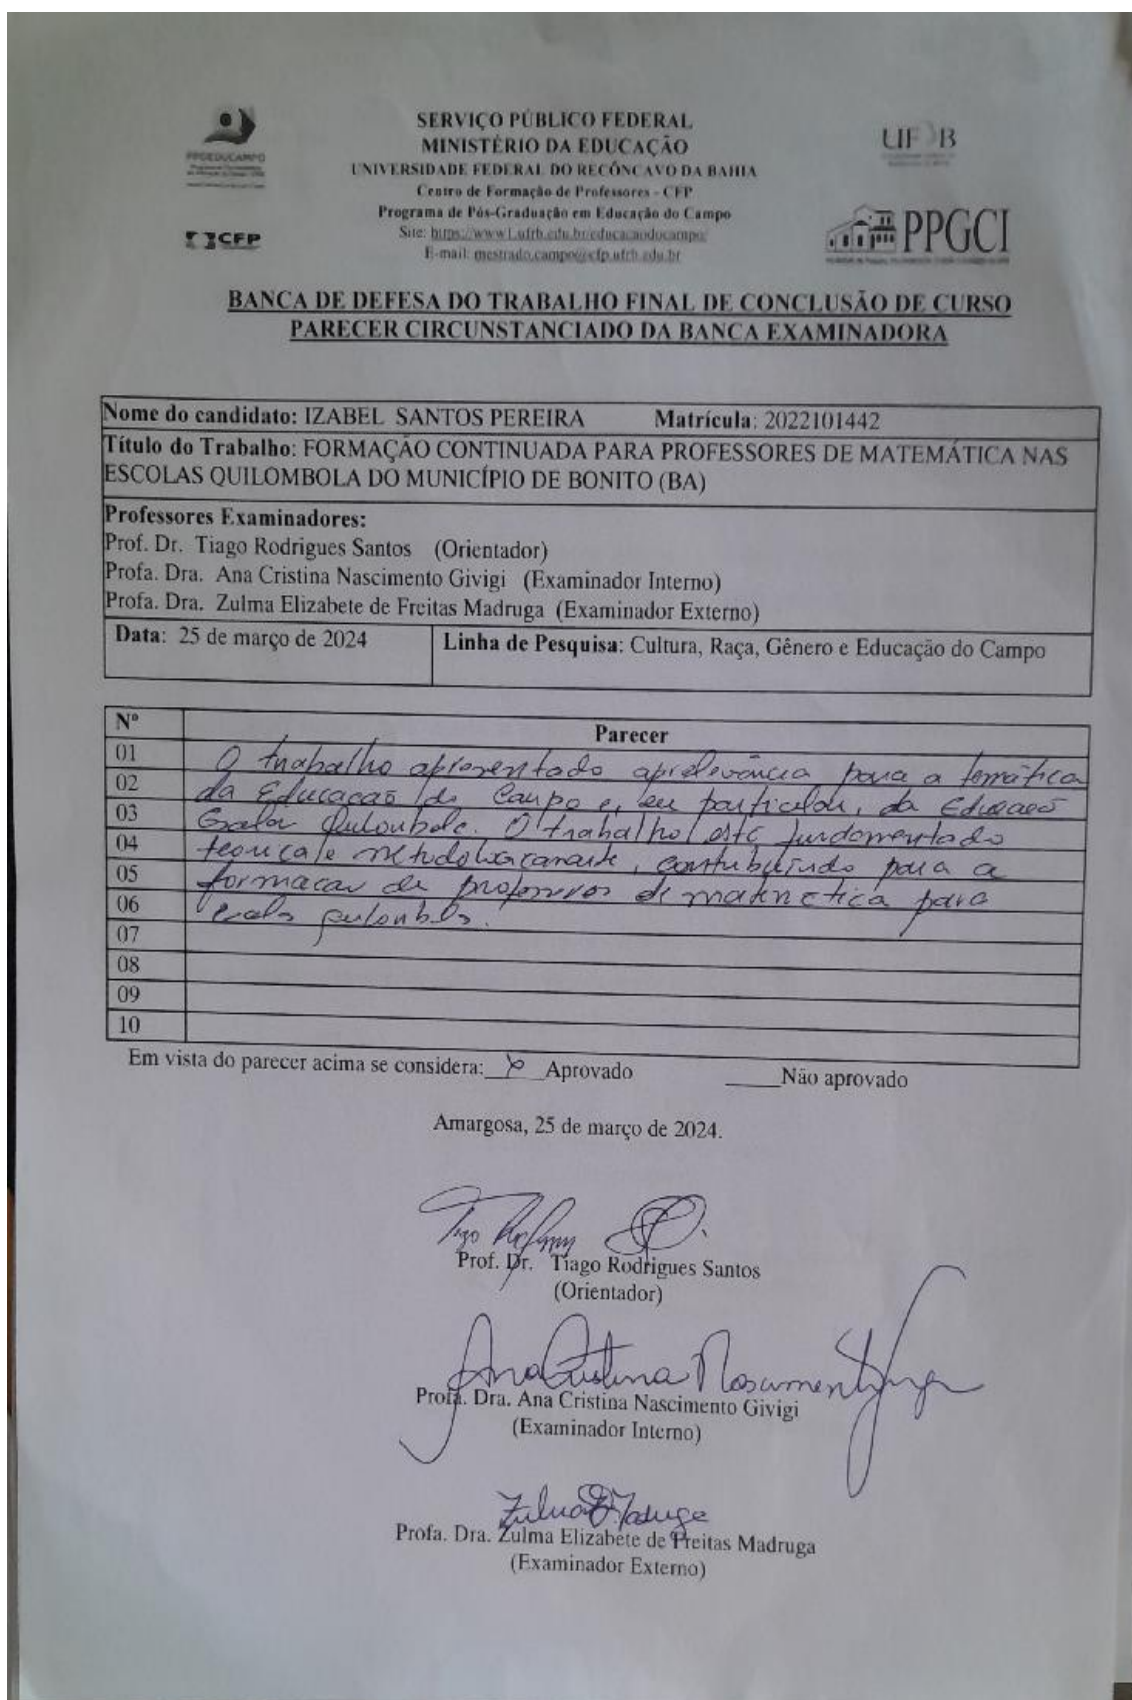 SERVIÇO PÚBLICO FEDERAL
MINISTÉRIO DA EDUCAÇÃO
UNIVERSIDADE FEDERAL DO RECÔNCAVO DA BAHIA
Centro de Formação de Professores - CFP
Programa de Pós-Graduação em Educação do Campo
Site: https://www1.ufrb.edu.br/educacaodocampo/
E-mail: mestrado.campo@cfp.ufrb.edu.br
PPGEDUCAMPO
CFP
UFRB
PPGCI
BANCA DE DEFESA DO TRABALHO FINAL DE CONCLUSÃO DE CURSO
PARECER CIRCUNSTANCIADO DA BANCA EXAMINADORA
Nome do candidato: IZABEL SANTOS PEREIRA Matrícula: 2022101442
Título do Trabalho: FORMAÇÃO CONTINUADA PARA PROFESSORES DE MATEMÁTICA NAS
ESCOLAS QUILOMBOLA DO MUNICÍPIO DE BONITO (BA)
Professores Examinadores:
Prof. Dr. Tiago Rodrigues Santos (Orientador)
Profa. Dra. Ana Cristina Nascimento Givigi (Examinador Interno)
Profa. Dra. Zulma Elizabete de Freitas Madruga (Examinador Externo)
Data: 25 de março de 2024 Linha de Pesquisa: Cultura, Raça, Gênero e Educação do Campo
Nº Parecer
01 O trabalho apresentado para a temática
02 da Educação do Campo e, em particular, da Educação
03 O trabalho está fundamentado
04 e contribuindo para a
05 formação de professores de matemática para
06
07
08
09
10
Em vista do parecer acima se considera: X Aprovado Não aprovado
Amargosa, 25 de março de 2024.
Prof. Dr. Tiago Rodrigues Santos
(Orientador)
Ana Cristina Nascimento
Profa. Dra. Ana Cristina Nascimento Givigi
(Examinador Interno)
Zulma Madruga
Profa. Dra. Zulma Elizabete de Freitas Madruga
(Examinador Externo)